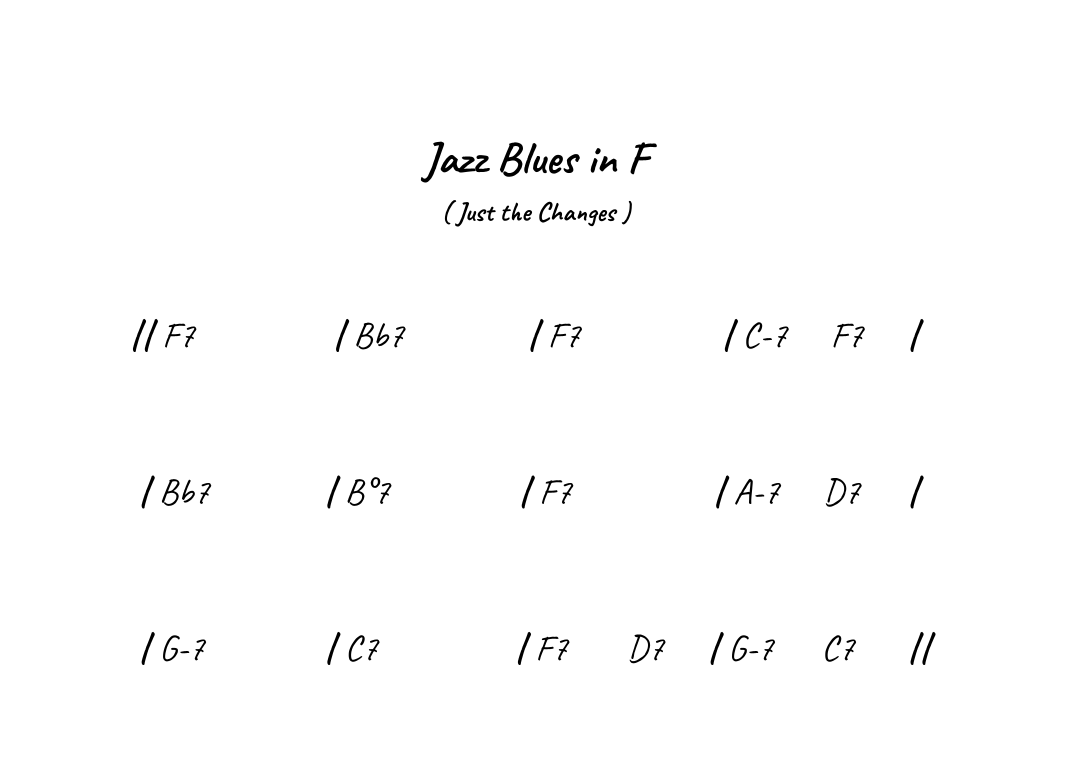 Jazz Blues in F
( Just the Changes )
|| F7 | Bb7 | F7 | C-7 F7 |
| Bb7 | Bº7 | F7 | A-7 D7 |
| G-7 | C7 | F7 D7 | G-7 C7 ||